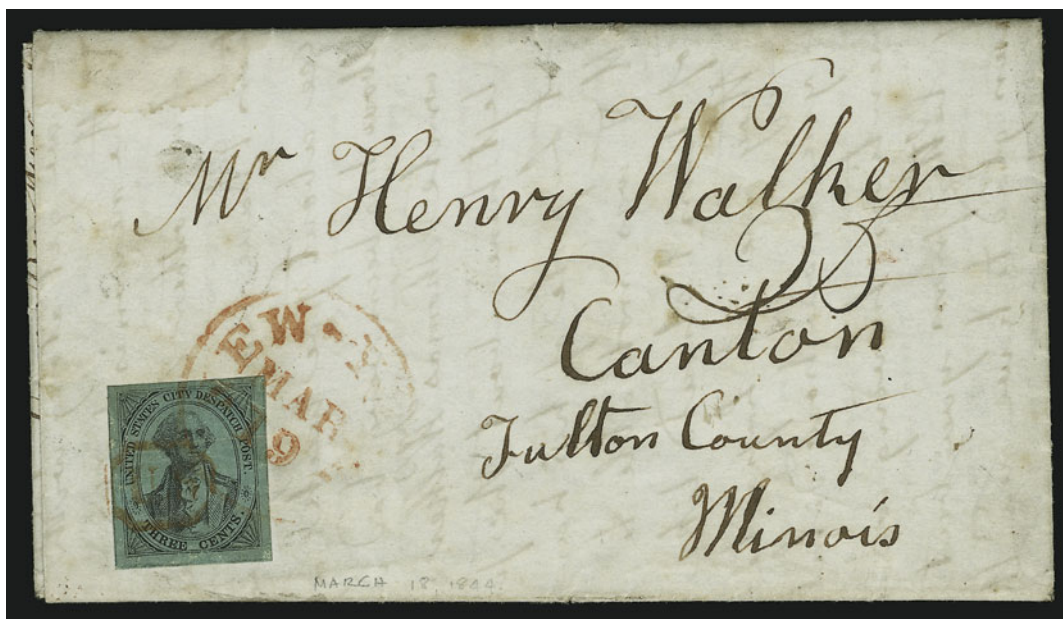 Mr Henry Walker
25
Canton
Fulton County
Illinois
EW-Y
MAR
19
UNITED STATES CITY DESPATCH POST.
THREE CENTS.
MARCH 18, 1844.